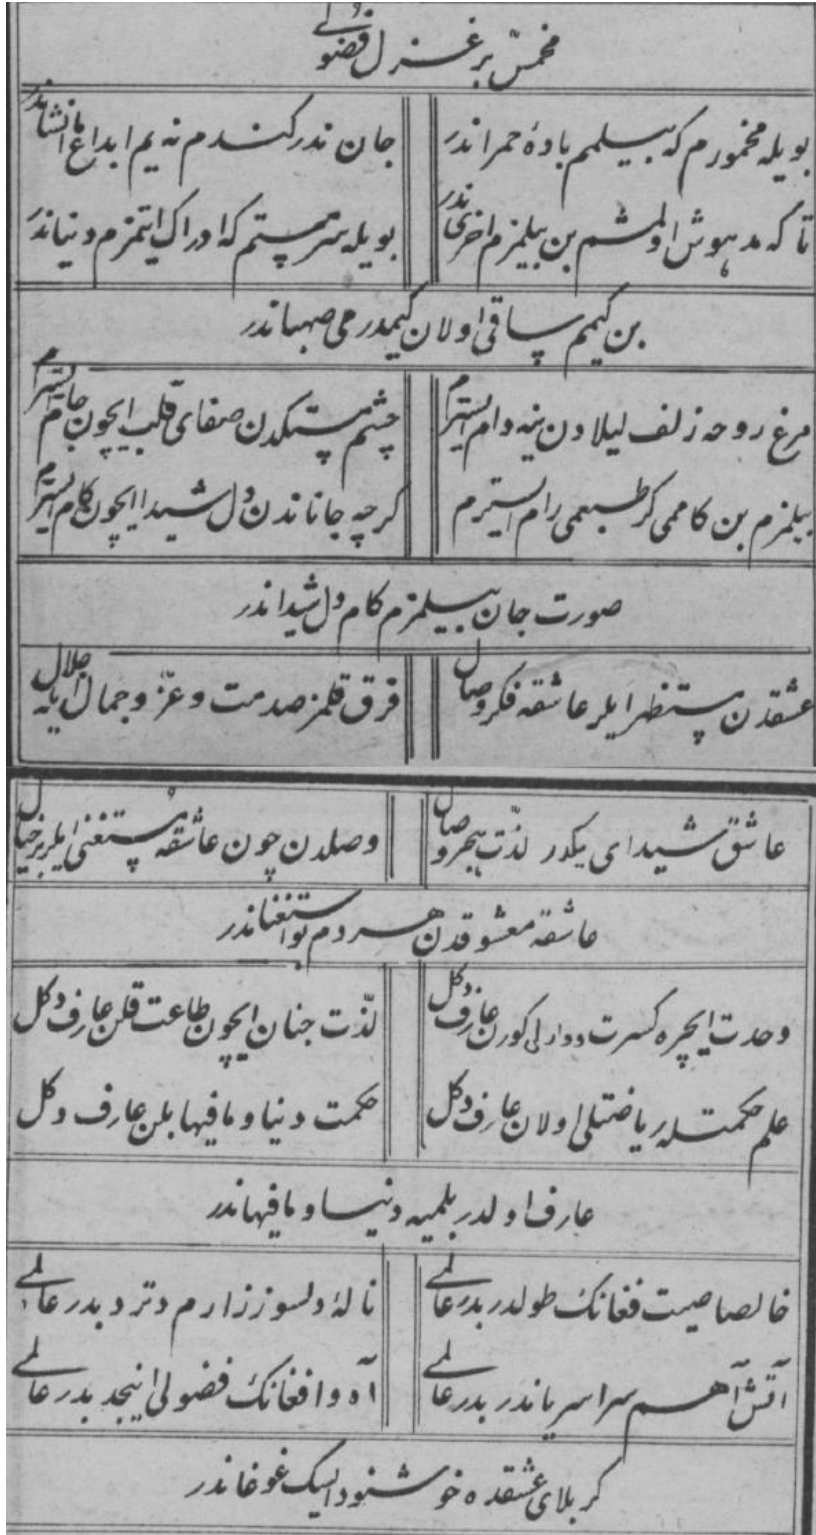 مخمّس بر غزل فضولی
بویله مخمورم که بیلمم بادهٔ حمرا ندر
جان ندر کندم نه یم ابداع انشا ندر
تا که مدهوش اولمشم بن بیلمزم اخری ندر
بویله سرمستم که ادراک ایتمزم دنیا ندر
بن کیمم ساقی اولان کیمدر می صهبا ندر
مرغ روحه زلف لیلادن ینه دام ایسترم
چشم مستکدن صفای قلب ایچون جام ایسترم
بیلمزم بن کاممی کر طبعمی رام ایسترم
کرچه جاناندن دل شیدا ایچون کام ایسترم
صورت جان بیلمزم کام دل شیدا ندر
عشقدن مستظهر ایلر عاشقه فکر وصال
فرق قلمز صدمت و عزّ و جمال ایله جلال
عاشق شیدای یکدر لذّت هجر وصال
وصلدن چون عاشقه مستغنی ایلر بر خیال
عاشقه معشوقدن هر دم بو استغنا ندر
وحدت ایچره کسرت دوارلی کورن عارف دکل
لذّت جنان ایچون طاعت قلن عارف دکل
علم حکمتله ریاضتلی اولان عارف دکل
حکمت دنیا و مافیها بلن عارف دکل
عارف اولدر بلمیه دنیا و مافیها ندر
خالصا صیت فغانک طولدر بدر عالمی
نالهٔ دلسوز زارم دترد بدر عالمی
آتش آهم سراسر یاندر بدر عالمی
آه و افغانک فضولی اینجد بدر عالمی
کربلای عشقده خوشنود ایسک غوغا ندر